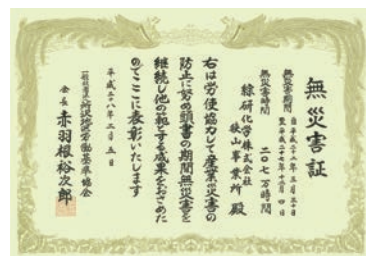 無災害証
無災害期間
無災害時間 二〇七万時間
綜研化学株式会社
狭山事業所 殿
右は労使協力して産業災害の
防止に努め頭書の期間無災害を
継続し他の範とする成果をおさめた
のでここに表彰いたします
平成二八年三月五日
所沢地区労働基準協会
会長 赤羽根裕次郎